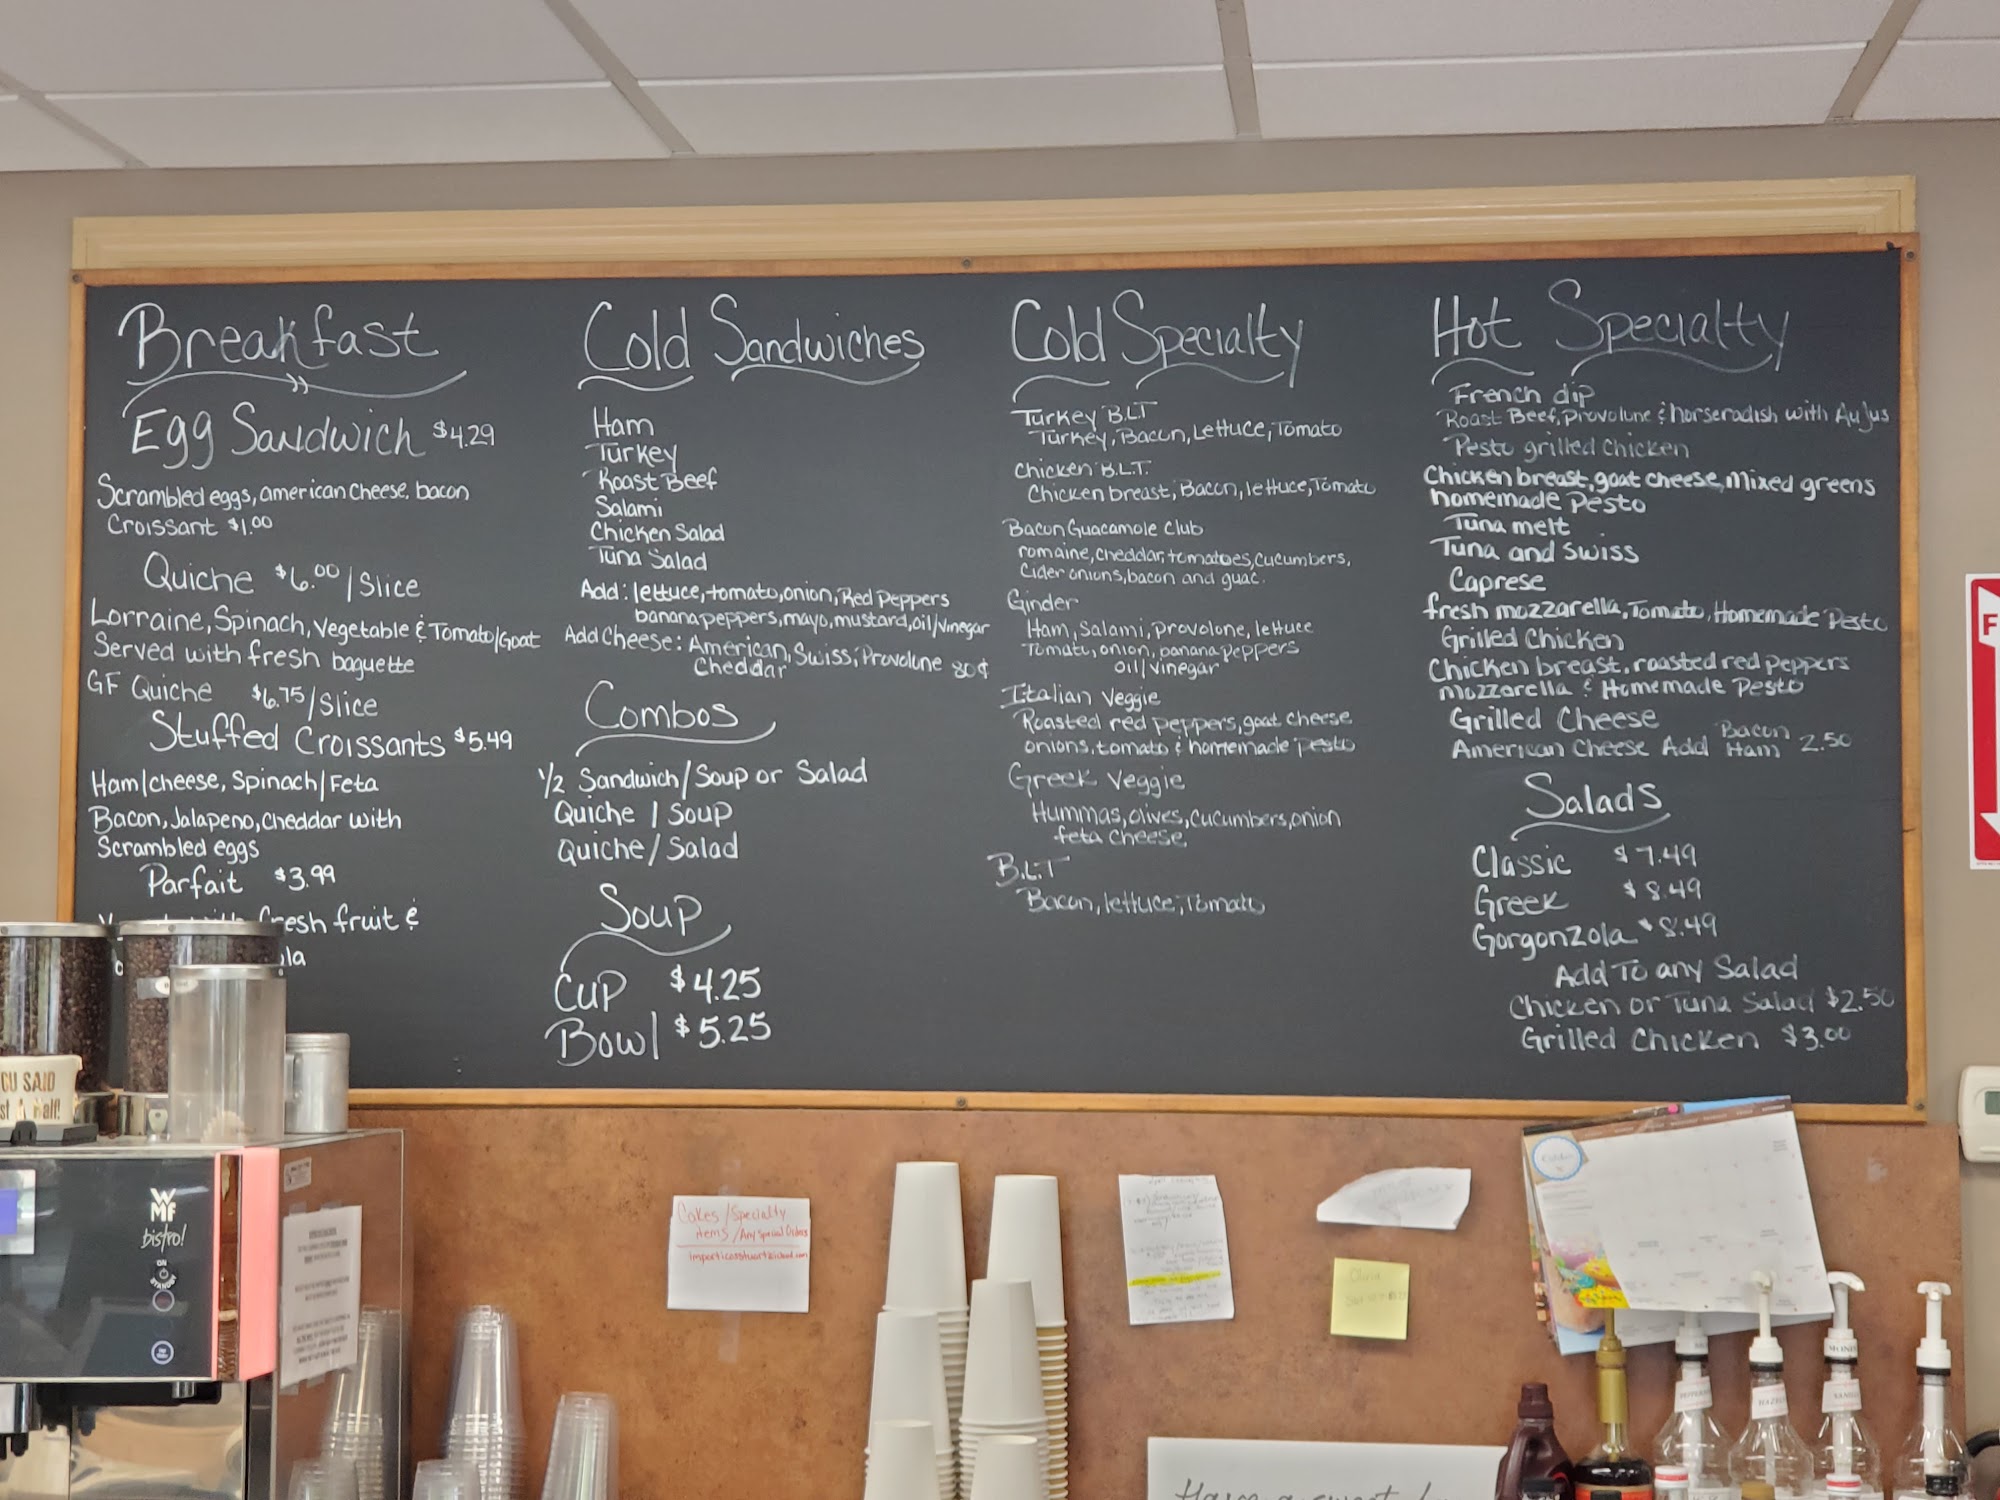 Breakfast
Egg Sandwich $4.29
Scrambled eggs, american cheese, bacon
Croissant $1.00
Quiche $6.00/Slice
Lorraine, Spinach, Vegetable & Tomato/Goat
Served with fresh baguette
GF Quiche $6.75/Slice
Stuffed Croissants $5.49
Ham/cheese, Spinach/Feta
Bacon, Jalapeno, Cheddar with
Scrambled eggs
Parfait $3.99
with fresh fruit &
Cold Sandwiches
Ham
Turkey
Roast Beef
Salami
Chicken Salad
Tuna Salad
Add: lettuce, tomato, onion, Red Peppers
banana peppers, mayo, mustard, oil/vinegar
Add Cheese: American, Swiss, Provolone 80¢
Cheddar
Combos
1/2 Sandwich/Soup or Salad
Quiche / Soup
Quiche/Salad
Soup
Cup $4.25
Bowl $5.25
Cold Specialty
Turkey B.L.T
Turkey, Bacon, Lettuce, Tomato
Chicken B.L.T.
Chicken breast, Bacon, lettuce, Tomato
Bacon Guacamole Club
romaine, cheddar, tomatoes, cucumbers,
Cider onions, bacon and guac.
Ginder
Ham, Salami, provolone, lettuce
Tomato, onion, banana peppers
oil/vinegar
Italian Veggie
Roasted red peppers, goat cheese
onions, tomato & homemade pesto
Greek Veggie
Hummas, olives, cucumbers, onion
feta cheese
B.L.T
Bacon, lettuce, Tomato
Hot Specialty
French dip
Roast Beef, Provolone & horseradish with AuJus
Pesto grilled Chicken
Chicken breast, goat cheese, mixed greens
homemade Pesto
Tuna melt
Tuna and Swiss
Caprese
fresh mozzarella, Tomato, Homemade Pesto
Grilled Chicken
Chicken breast, roasted red peppers
mozzarella & Homemade Pesto
Grilled Cheese
American Cheese Add Bacon Ham 2.50
Salads
Classic $7.49
Greek $8.49
Gorgonzola $8.49
Add To any Salad
Chicken or Tuna Salad $2.50
Grilled Chicken $3.00
CU SAID
st A Half!
WMF
bistro!
ON
STANDBY
Cakes/Specialty
items/Any Special Orders
F